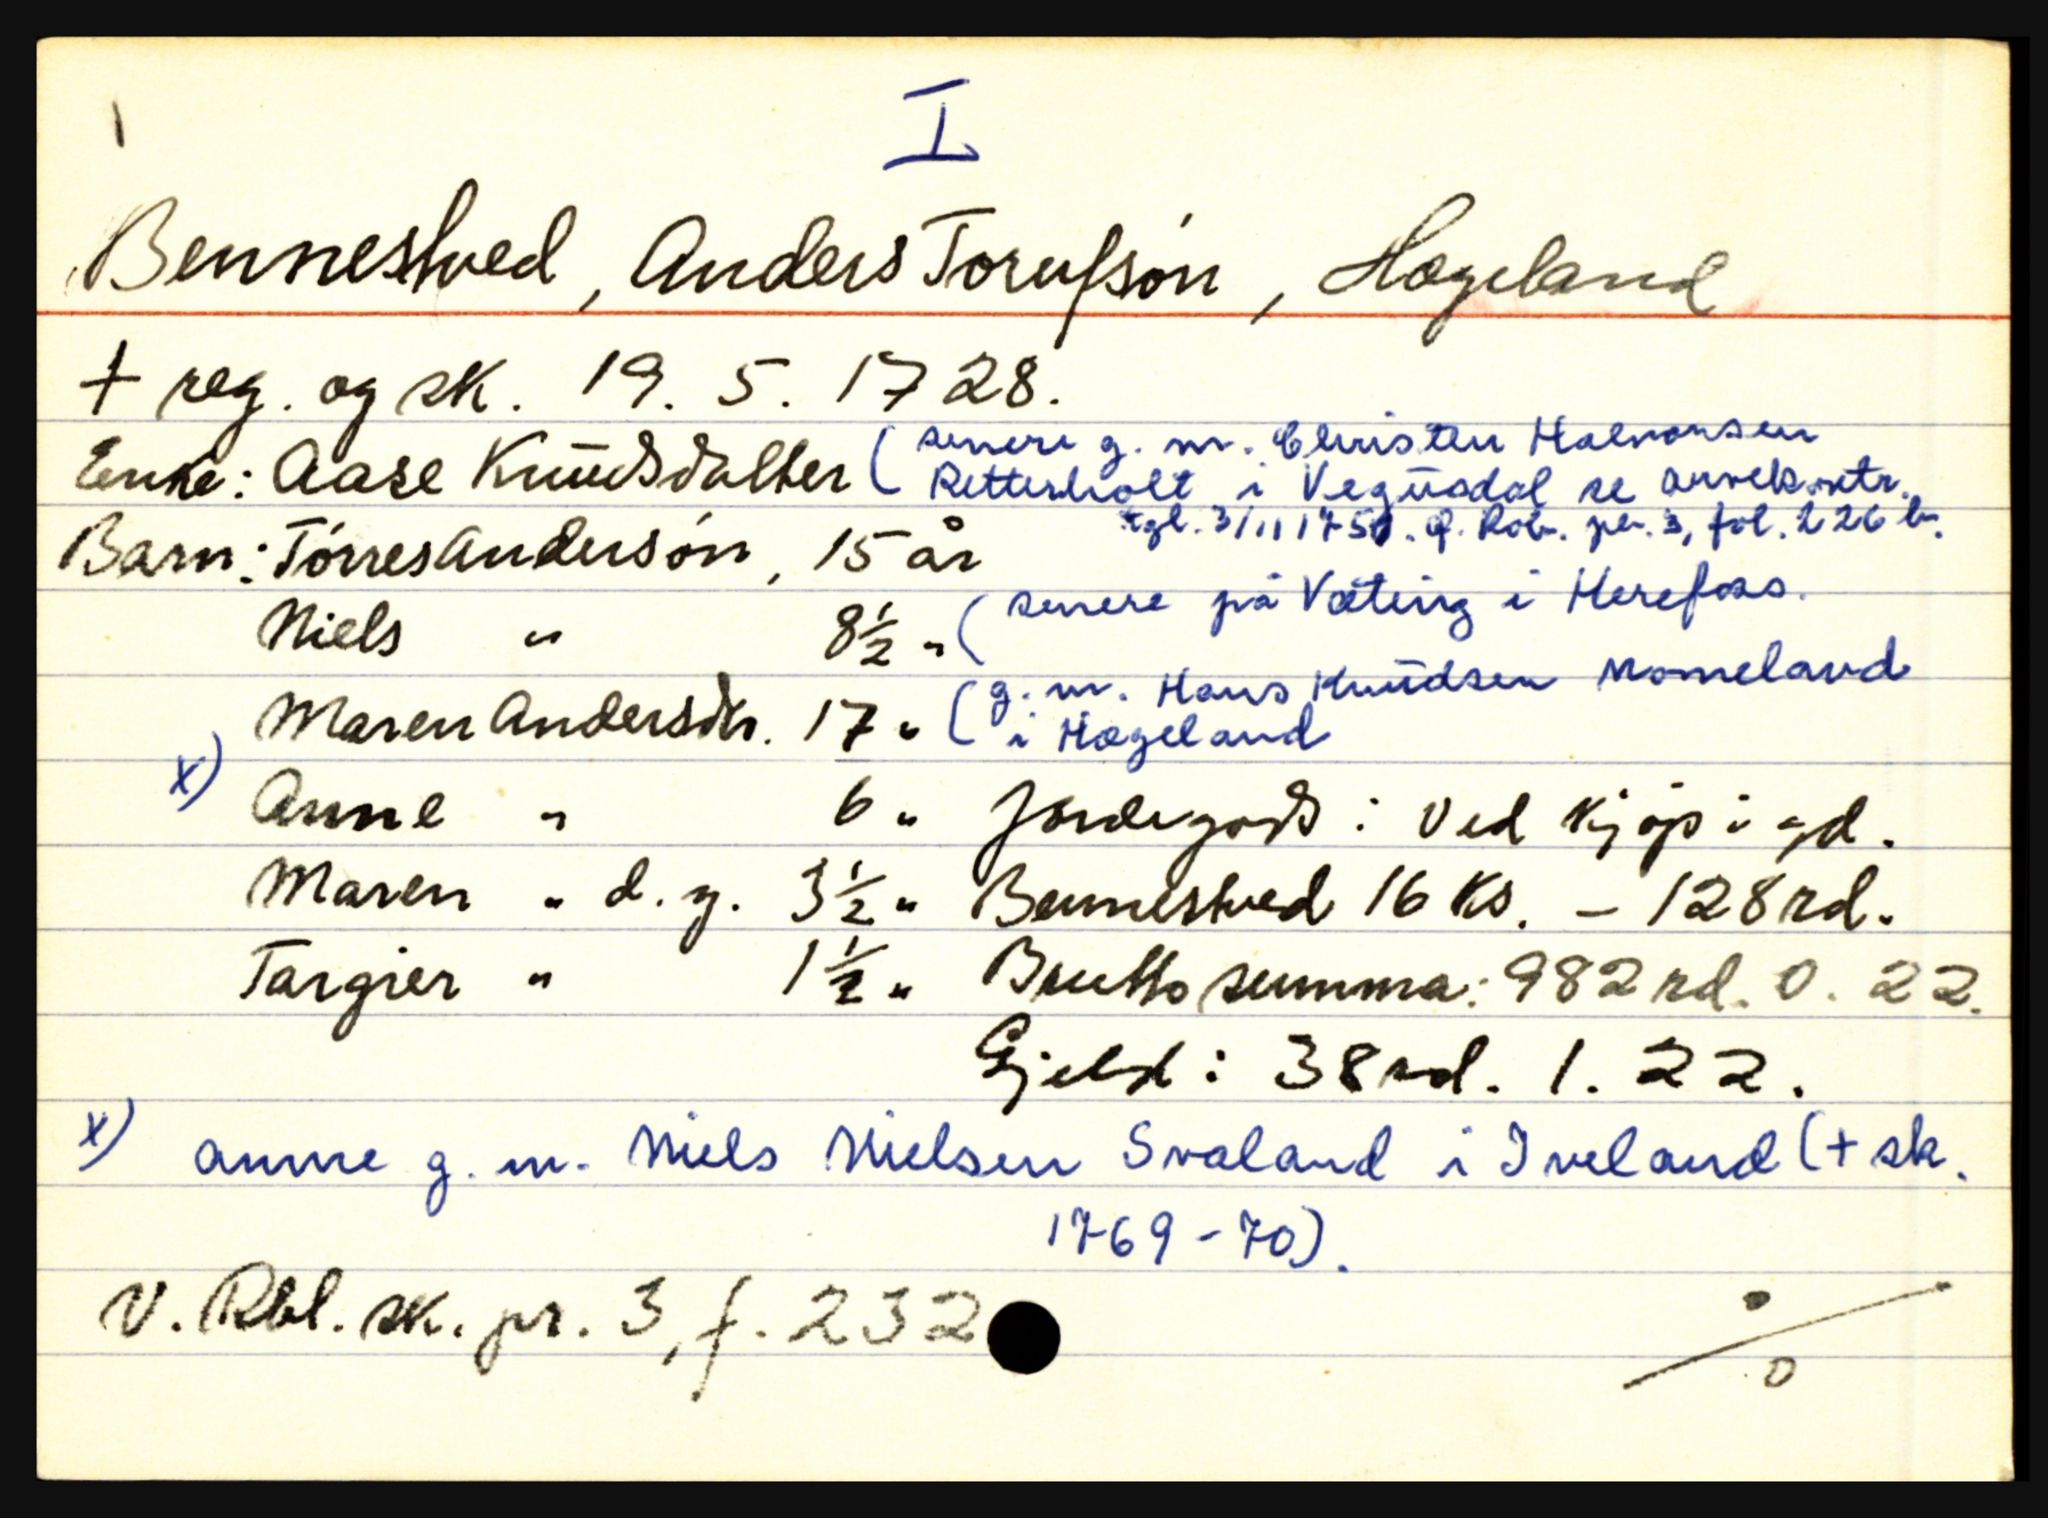 I
Bennestved, Anders Torufsön, Hægeland
+ reg. og sk. 19. 5. 1728.
Enke: Aase Knudsdatter (senere g. m. Christen Halvorsen
Retterholt i Vegusdal se arvekontr.
tgl. 3/11 1751. Q. Rob. pr. 3, fol. 226 b.
Barn: Törres Andersön, 15 år
Niels " 8½ " (senere på Væting i Herefoss.
Maren Andersdtr. 17 " (g. m. Hans Knudsen Momeland
i Hægeland
x) Anne " 6 " Jordegods: Ved kjøp i gd.
Maren " d. y. 3½ " Bennestved 16 ks. - 128 rd.
Targier " 1½ " Brutto summa: 982 rd. 0. 22.
Gjeld: 38 rd. 1. 22.
x) Anne g. m. Niels Nielsen Svaland i Iveland (+ sk.
1769-70).
V. Rbl. sk. pr. 3, f. 232